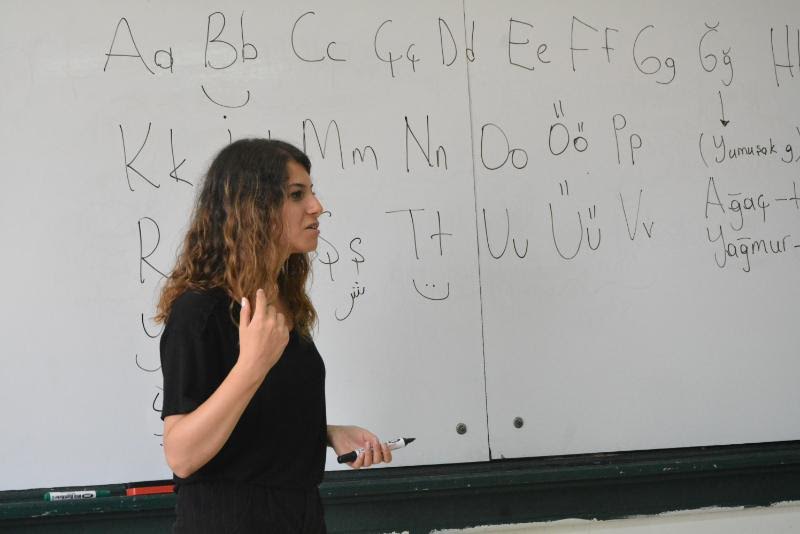 Aa Bb Cc Çç Dd Ee Ff Gg Ğğ H
Kk Mm Nn Oo Öö Pp (Yumuşak g)
R Şş Tt Uu Üü Vv Ağaç-
Yağmur-
ش ت